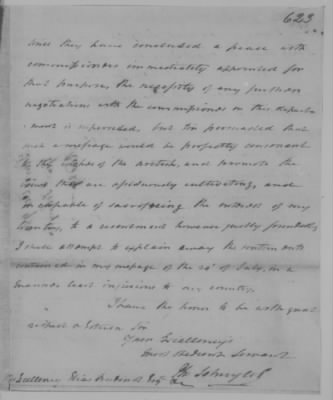 623
since they have concluded a peace with
commissioners immediately appointed for
that purpose, the necessity of any further
negotiations with the commissioners in this depart
ment is superseded, but I'm persuaded that
such a message would be perfectly consonant
to the of the and promote the
views they are assiduously cultivating, and
incapable of sacrificing the interests of my
Country, to a resentment however justly founded,
I shall attempt to explain away the sentiments
contained in my message of the of July, in a
manner least injurious to my country.
I have the honor to be with great
respect & Esteem Sir
Your Excellency's
most obedient Servant
Ph: Schuyler
His Excellency Elias Boudinott Esqr &c